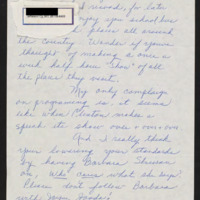 I record, for later
enjoy you school bus
places all around
the country. Wonder if you've
thought of making a once a
week half hour "show" of all
the places they visit.
My only complaint
on programing is it seems
like when makes a
speech its shown over + over + over
And I really think
you lowering your standards
by having Barbara
on, who cares what she says.
Please don't follow Barbara
with